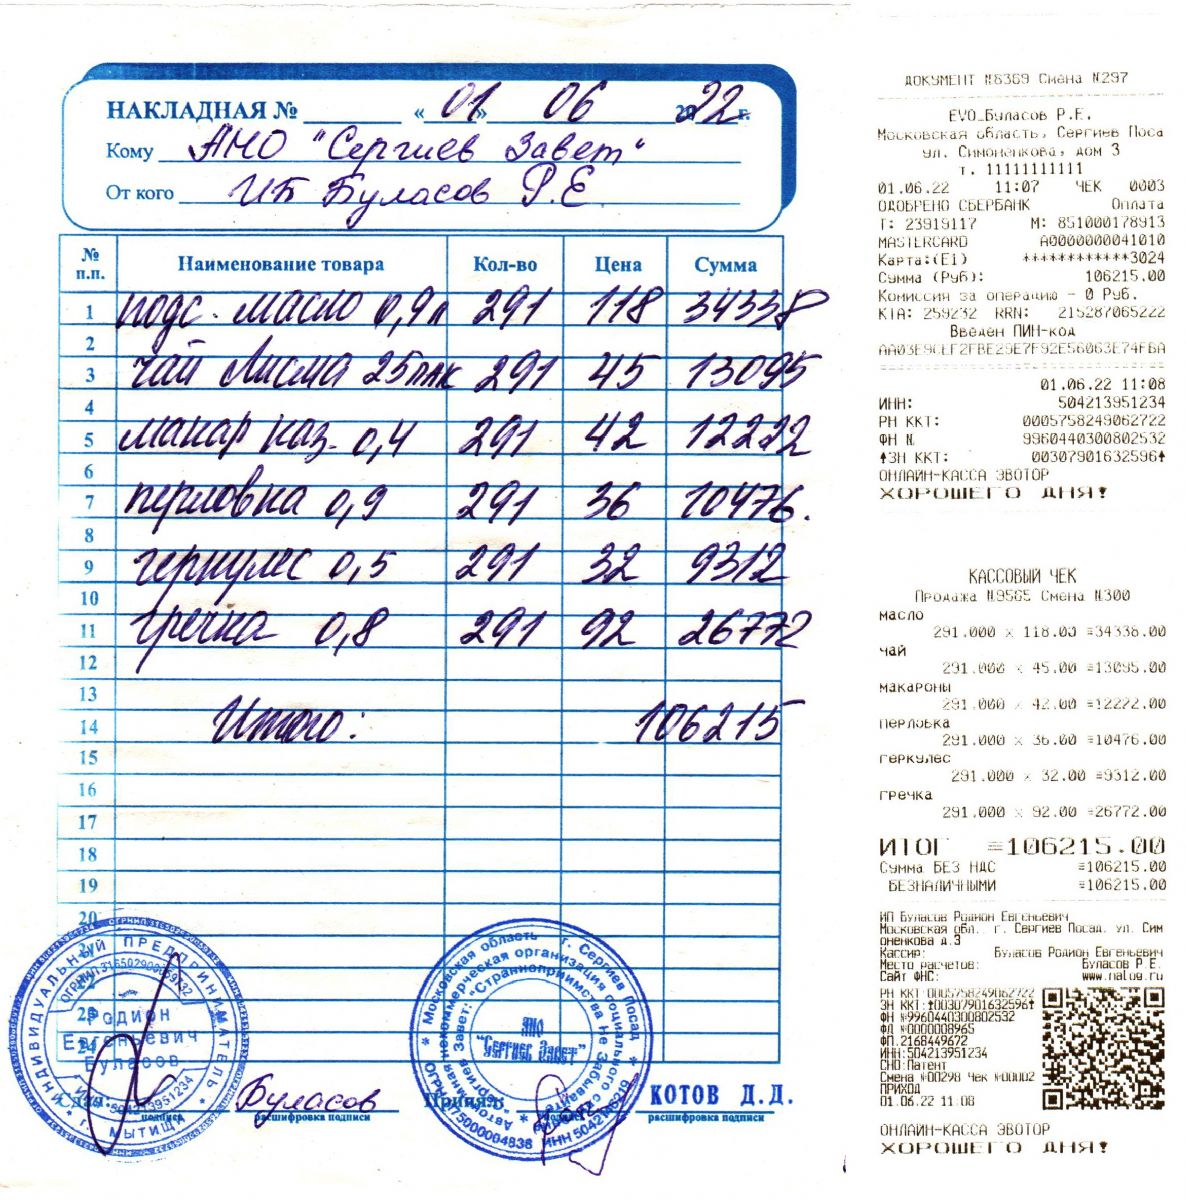 НАКЛАДНАЯ № « 01 » 06 2022 г.
Кому АНО "Сергиев Завет"
От кого ИП Буласов Р.Е.
№ п.п. Наименование товара Кол-во Цена Сумма
1 подс. масло 0,9л 291 118 34338
2
3 чай Лисма 25пак 291 45 13095
4
5 макар каз. 0,4 291 42 12222
6
7 перловка 0,9 291 36 10476.
8
9 геркулес 0,5 291 32 9312
10
11 гречка 0,8 291 92 26772
12
13
14 Итого: 106215
15
16
17
18
19
20
24
ИНДИВИДУАЛЬНЫЙ ПРЕДПРИНИМАТЕЛЬ
Родион
Евгеньевич
Буласов
504213951234
г. МЫТИЩИ
Московская область г. Сергиев Посад
АНО
"Сергиев Завет"
Сдал подпись Буласов расшифровка подписи Принял КОТОВ Д.Д. расшифровка подписи
ДОКУМЕНТ №8369 Смена №297
EVO_Буласов Р.Е.
Московская область, Сергиев Поса
ул. Симоненкова, дом 3
т. 11111111111
01.06.22 11:07 ЧЕК 0003
ОДОБРЕНО СБЕРБАНК Оплата
Т: 23919117 М: 851000178913
MASTERCARD A0000000041010
Карта:(E1) ************3024
Сумма (Руб): 106215.00
Комиссия за операцию - 0 Руб.
КТА: 259232 RRN: 215287065222
Введен ПИН-код
01.06.22 11:08
ИНН: 504213951234
РН ККТ: 0005758249062722
ФН № 9960440300802532
↑ЗН ККТ: 00307901632596↑
ОНЛАЙН-КАССА ЭВОТОР
ХОРОШЕГО ДНЯ!
КАССОВЫЙ ЧЕК
Продажа №9565 Смена №300
масло
291.000 x 118.00 =34338.00
чай
291.000 x 45.00 =13095.00
макароны
291.000 x 42.00 =12222.00
перловка
291.000 x 36.00 =10476.00
геркулес
291.000 x 32.00 =9312.00
гречка
291.000 x 92.00 =26772.00
ИТОГ =106215.00
Сумма БЕЗ НДС =106215.00
БЕЗНАЛИЧНЫМИ =106215.00
ИП Буласов Родион Евгеньевич
Московская обл., г. Сергиев Посад, ул. Сим
оненкова д.3
Кассир: Буласов Родион Евгеньевич
Место расчетов: Буласов Р.Е.
Сайт ФНС: www.nalog.ru
РН ККТ:0005758249062722
ЗН ККТ:↑00307901632596↑
ФН №9960440300802532
ФД №0000008965
ФП:2168449672
ИНН:504213951234
СНО:Патент
Смена №00298 Чек №00002
ПРИХОД
01.06.22 11:08
ОНЛАЙН-КАССА ЭВОТОР
ХОРОШЕГО ДНЯ!